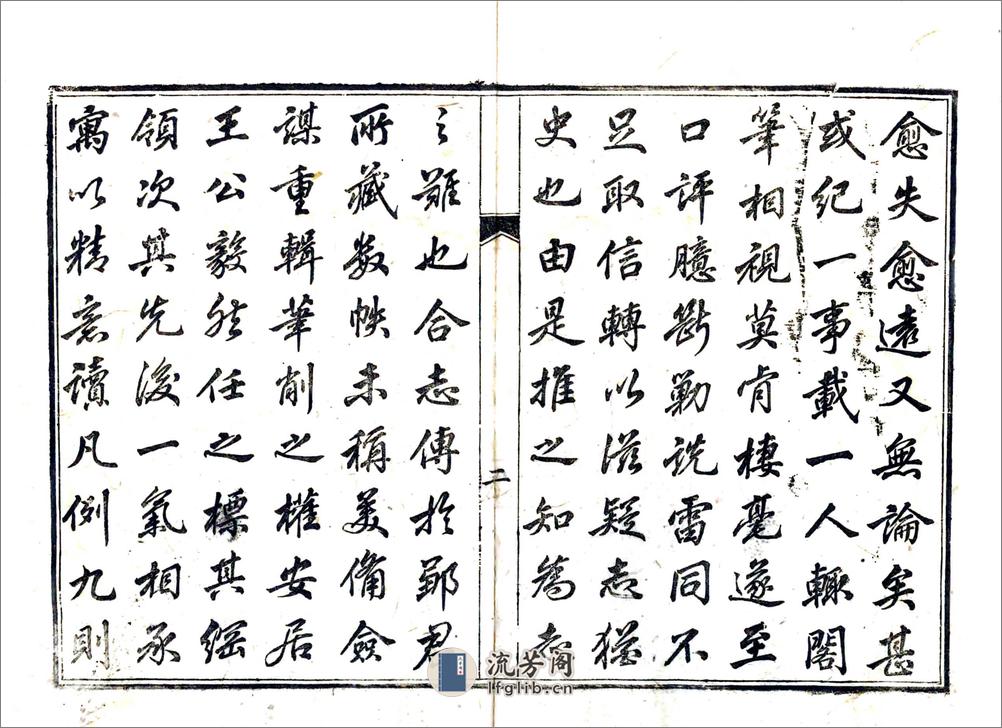 愈失愈遠又無論矣甚
或紀一事載一人輙閣
筆相視莫肯棲毫遂至
口評臆斷勦説雷同不
足取信轉以滋疑志猶
史也由是推之知爲志
二
之難也合志傳於鄞君
所藏數帙未稱美備僉
謀重輯筆削之權安居
王公毅然任之標其綱
領次其先後一氣相承
寓以精意讀凡例九則
流芳阁
lfglib.cn